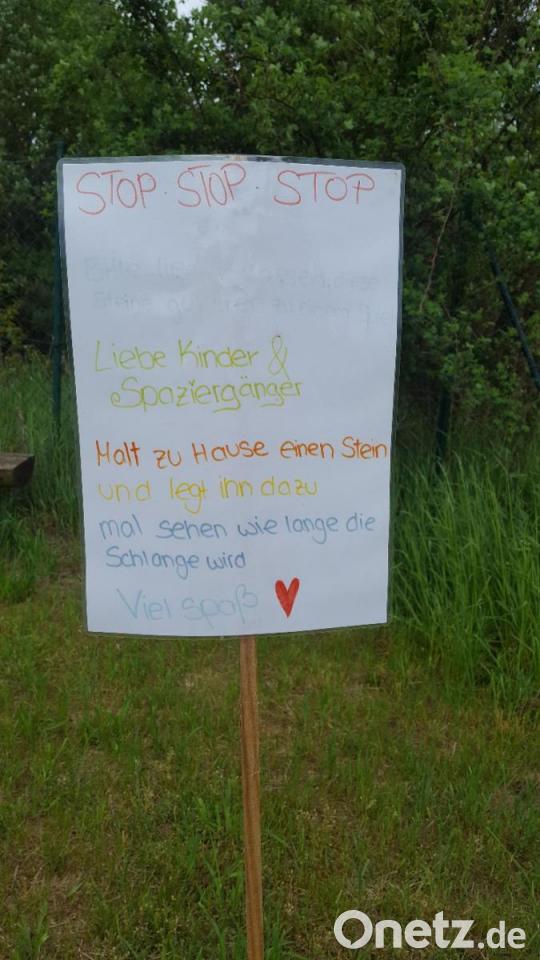 STOP · STOP · STOP
Bitte
Steine
Liebe Kinder &
Spaziergänger
Malt zu Hause einen Stein
und legt ihn dazu
mal sehen wie lange die
Schlange wird
Viel Spaß ♥
Onetz.de